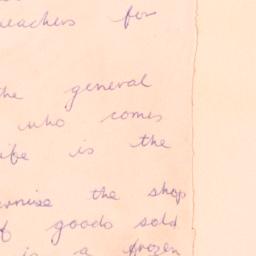 teachers for
the general
who comes
ife is the
ernise the shop
f goods sold
is a frozen